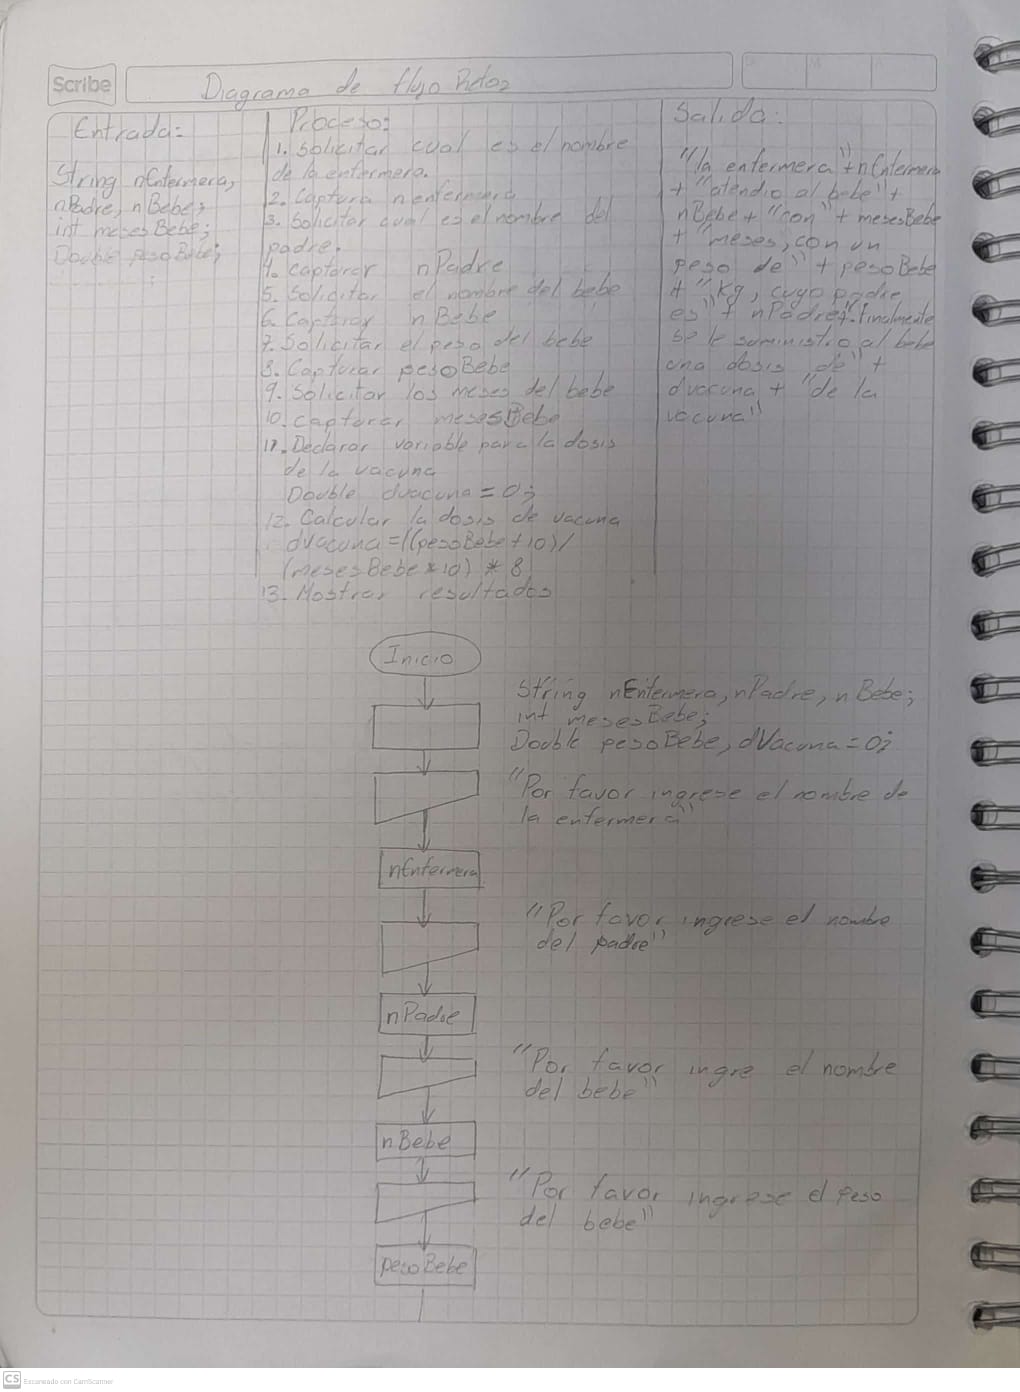 Scribe
Diagrama de flujo Reto2
Entrada:
String nEnfermera,
nPadre, nBebe;
int mesesBebe;
Double pesoBebe;
Proceso:
1. Solicitar cual es el nombre
de la enfermera.
2. Captura nenfermera
3. Solicitar cual es el nombre del
padre.
4. Capturar nPadre
5. Solicitar el nombre del bebe
6. Capturar nBebe
7. Solicitar el peso del bebe
8. Capturar pesoBebe
9. Solicitar los meses del bebe
10. capturar mesesBebe
11. Declarar variable para la dosis
de la vacuna
Double dvacuna = 0;
12. Calcular la dosis de vacuna
dVacuna = ((pesoBebe + 10) /
(mesesBebe * 10) * 8
13. Mostrar resultados
Salida:
"la enfermera" + nEnfermera
+ "atendio al bebe" +
nBebe + "con" + mesesBebe
+ "meses, con un
peso de" + pesoBebe
+ "Kg, cuyo padre
es" + nPadre + ". Finalmente
se le suministro al bebe
una dosis de" +
dvacuna + "de la
vacuna"
Inicio
String nEnfermera, nPadre, nBebe;
int mesesBebe;
Double pesoBebe, dVacuna = 0;
"Por favor ingrese el nombre de
la enfermera"
nEnfermera
"Por favor ingrese el nombre
del padre"
nPadre
"Por favor ingre el nombre
del bebe"
nBebe
"Por favor ingrese el peso
del bebe"
pesoBebe
CS Escaneado con CamScanner